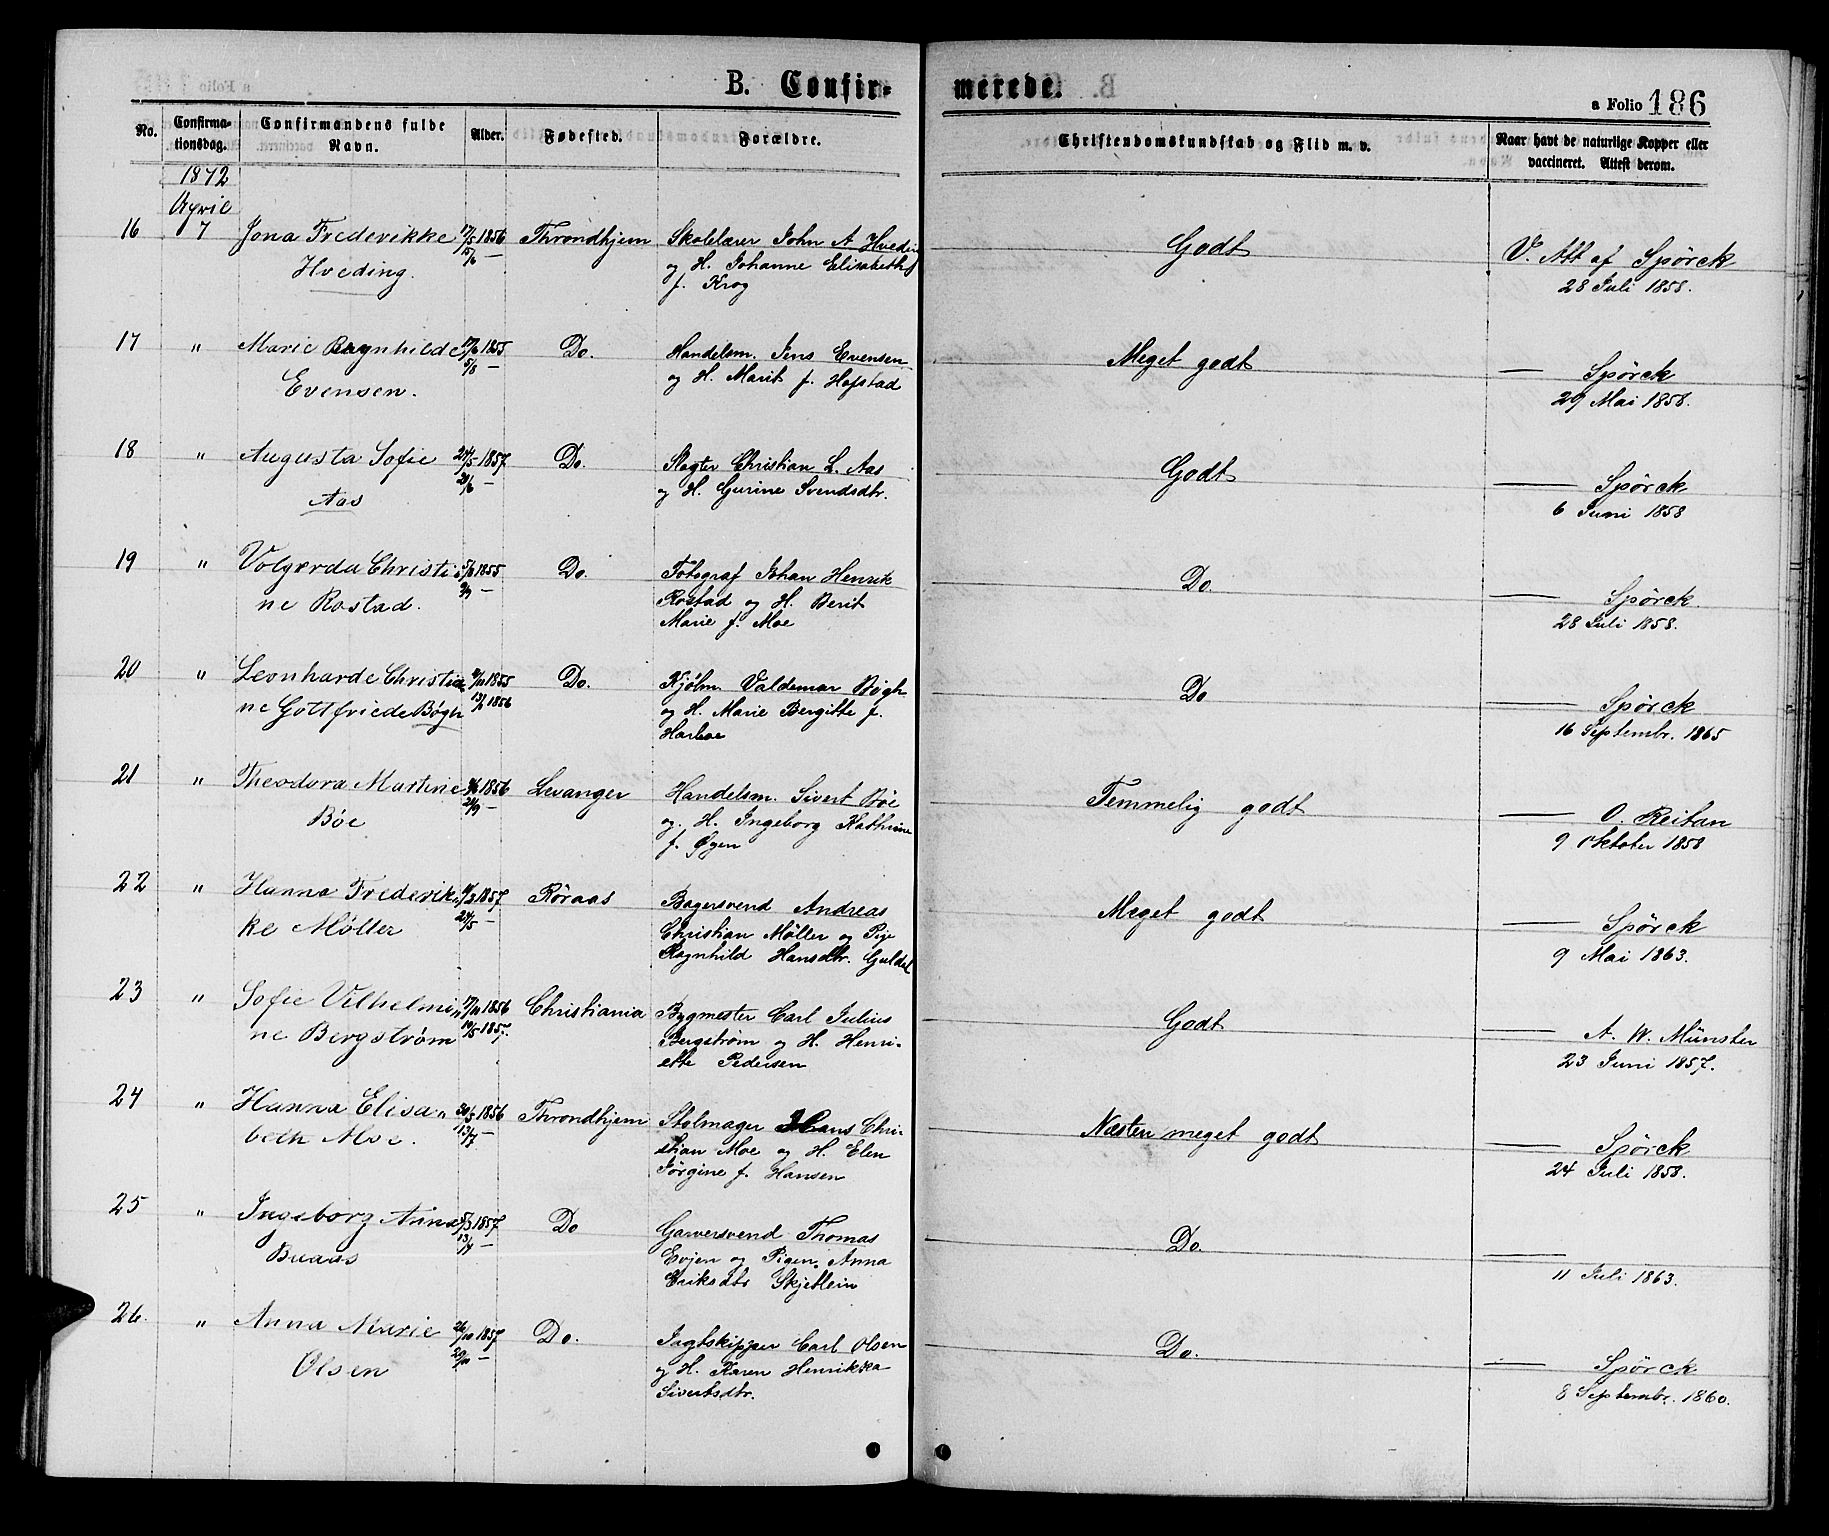 B. Confirmerede.
a Folio 186
No. Confirmationsdag. Confirmandens fulde Navn. Alder. Fødested. Forældre. Christendomskundskab og Flid m. v. Naar havt de naturlige Kopper eller vaccineret. Attest derom.
1872
April
16 7 Jona Frederikke 17/5 1856 Throndhjem Skolelærer John A Hveding Godt V. Att af Spörck
Hveding. 15/6 — og H. Johanne Elisabeth 28 Juli 1858.
f. Krog
17 " Marie Ragnhilde 1855 Do. Handelsm. Jens Evensen Meget godt — Spörck
Evensen. 5/8 — og H. Marit f. Hofstad 29 Mai 1858.
18 " Augusta Sofie 24/5 1857 Do. Slagter Christian L. Aas Godt — Spörck
Aas — og H. Gurine Svendsdtr. 6 Juni 1858
19 " Volgerda Christi 1855 Do. Fotograf Johan Henrik Do. — Spörck.
ne Rostad. — Rostad og H. Berit 28 Juli 1858.
Marie f. Moe
20 " Leonharde Christia 1855 Do. Kjølm. Valdemar Bøgh Do — Spörck
ne Gottfriede Bøgh 13/1 1856 og H. Marie Bergitte f. 16 Septembr. 1865
21 " Theodora Martine 1856 Levanger Handelsm. Sivert Böe Temmelig godt — O. Reitan
Böe 21/9 — og H. Ingeborg Kathrine 9 Oktober 1858
f. Øyen
22 " Hanna Frederik 1857 Röraas Bagersvend Andreas Meget godt — Spörck
ke Møller 24/5 — Christian Møller og Pige 9 Mai 1863.
Ragnhild Hansdtr. Guldal
23 " Sofie Vilhelmi 1856 Christiania Bygmester Carl Julius Godt — A. W. Münster
ne Bergstrøm 1857. Bergstrøm og H. Henri- 23 Juni 1857.
ette Pedersen
24 " Hanna Elisa 30/5 1856 Throndhjem Stolmager Hans Chri- Næsten meget godt — Spörck
beth Moe. 13/7 — stian Moe og H. Elen 24 Juli 1858.
Jörgine f. Hansen
25 " Ingeborg Anna 1857 Do Garversvend Thomas Do. —
Buaas 13/4 — Evjen og Pigen Anna 11 Juli 1863.
Eriksdtr Skjetlein
26. " Anna Marie 26/10 1857 Do. Jagtskipper Carl Olsen Do. — Spörck
Olsen — og H. Karen Henrikka 8 Septembr. 1860.
Sivertsdtr.